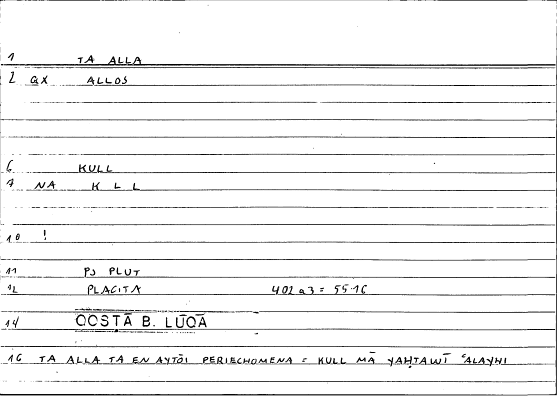 1 TA ALLA
2 GX ALLOS
6 KULL
7 NA K L L
10 !
11 PS PLUT
12 PLACITA 402 a3 = 55 16
14 QOSṬĀ B. LŪQĀ
16 TA ALLA TA EN AYTŌI PERIECHOMENA = KULL MĀ YAḤTAWĪ ʿALAYHI